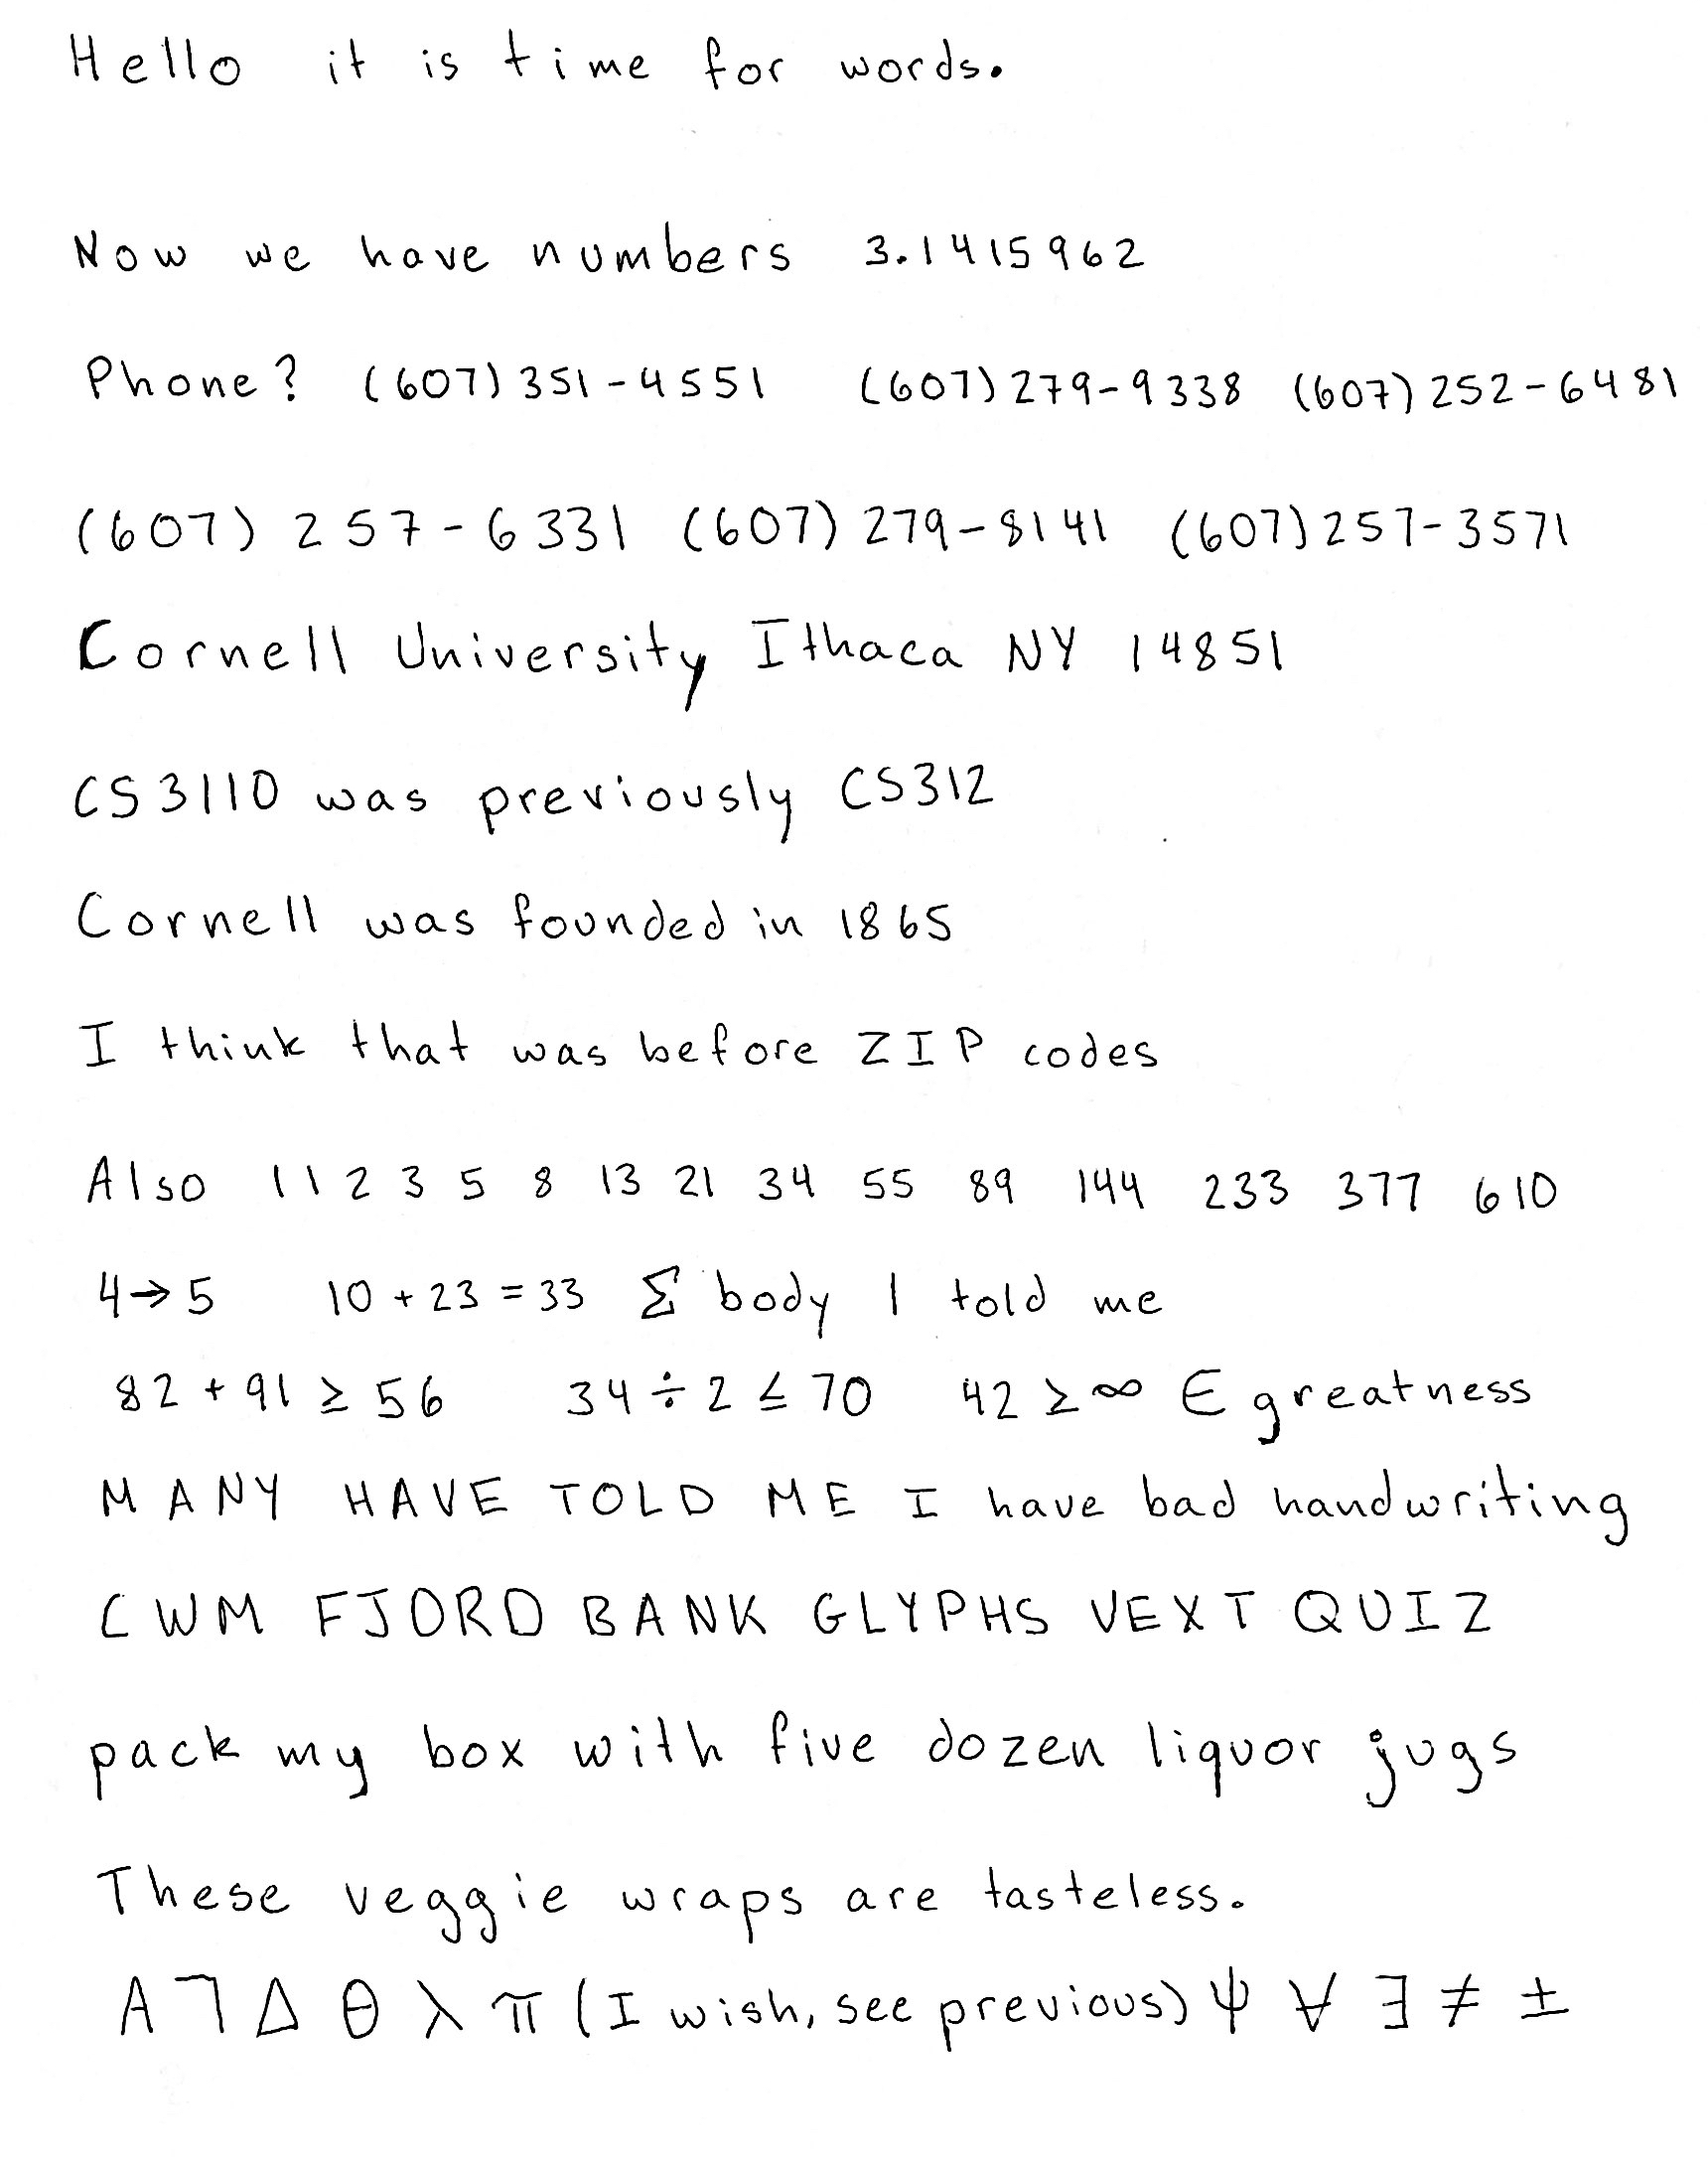 Hello it is time for words.
Now we have numbers 3.1415962
Phone? (607) 351-4551 (607) 279-9338 (607) 252-6481
(607) 257-6331 (607) 279-8141 (607) 257-3571
Cornell University Ithaca NY 14851
CS3110 was previously CS312
Cornell was founded in 1865
I think that was before ZIP codes
Also 1 1 2 3 5 8 13 21 34 55 89 144 233 377 610
4→5 10+23=33 Σ body I told me
82+91≥56 34÷2≤70 42≥∞ ∈ greatness
MANY HAVE TOLD ME I have bad handwriting
CWM FJORD BANK GLYPHS VEXT QUIZ
pack my box with five dozen liquor jugs
These veggie wraps are tasteless.
A ㄱ Δ θ λ π (I wish, see previous) ψ ∀ ∃ ≠ ±